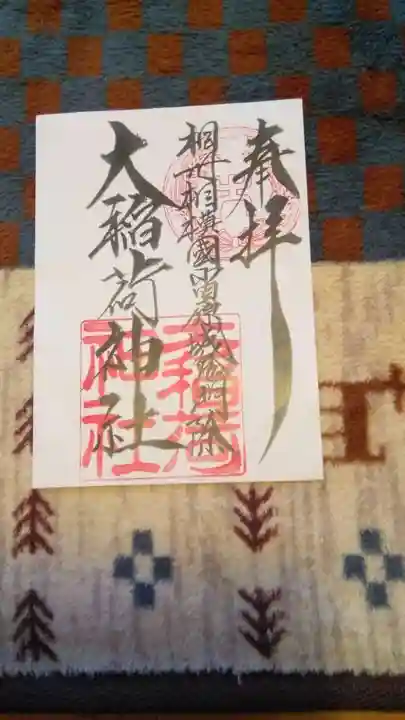 奉拝
相模國小田原城
大稲荷神社
大稲荷
神社